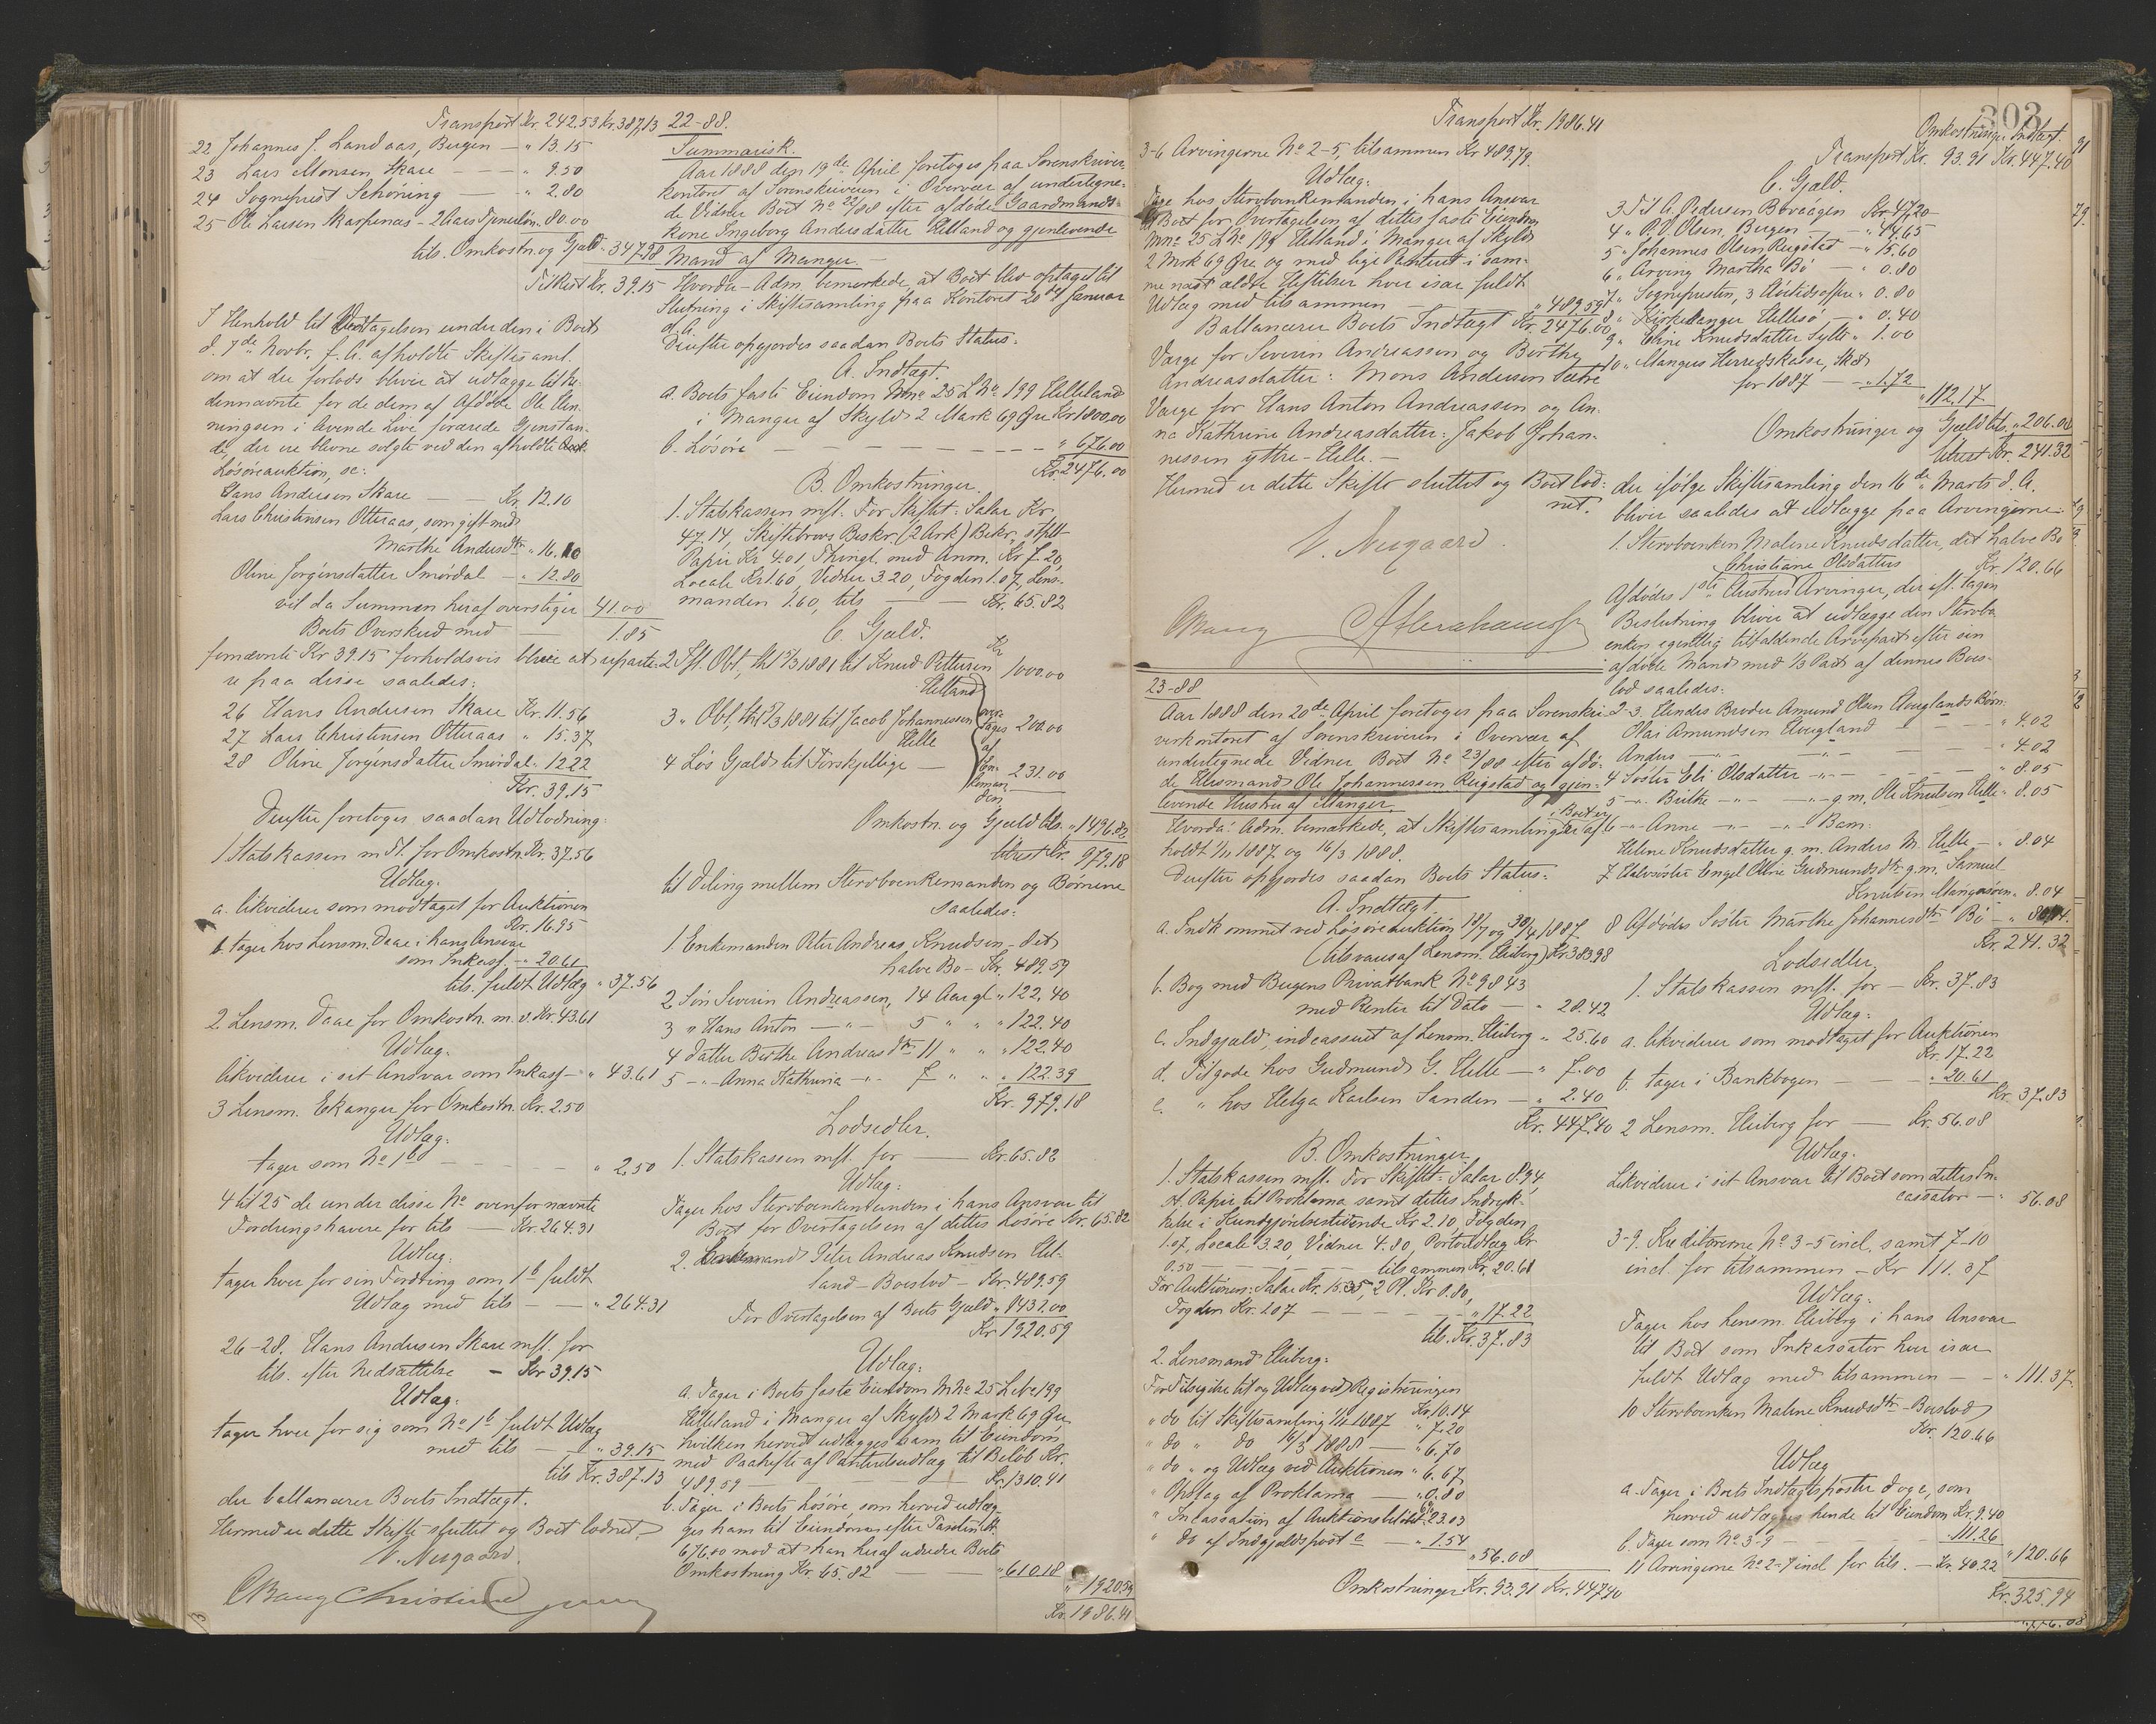 Transport Kr. 242.53 Kr. 387.13
22 Johannes J. Landaas, Bergen — " 13.15
23 Lars Monsen Skare — — — " 9.50
24 Sogneprest Schöning — — " 2.80
25 Ole Larsen Skarpenæs - 2 Aars Tjenerløn " 80.00
tils. Omkostn. og Gjæld " 347.98
Til Rest Kr. 39.15
I Henhold til Vedtagelsen under den i Boets
d. 7de Novbr. f. A. afholdte Skiftesaml.
om at der forlods bliver at udlægge til ne-
dennævnte for de dem af Afdøde Ole Hen-
ningsen i levende Live forærede Gjenstan-
de, der ere blevne solgte ved den afholdte
Løsøreauktion, sc:
Hans Andersen Skare — — Kr. 12.10
Lars Christensen Otteraas, som gift med
Marthe Andersdtr " 16.10
Oline Jørgensdatter Smørdal — " 12.80
vil da Summen heraf overstiger 41.00
Boets Overskud med — 1.85
fornævnte Kr 39.15 forholdsvis bliver at reparte-
re paa disse saaledes:
26 Hans Andersen Skare Kr. 11.56
27 Lars Christensen Otteraas " 15.37
28 Oline Jørgensdatter Smørdal " 12.22
Kr. 39.15
Derefter foretoges saadan Udlodning:
1 Statskassen m Fl. for Omkostn. Kr. 37.56
Udlæg:
a. likviderer som modtaget for Auktionen
Kr. 16.95
b. tager hos Lensm. Daae i hans Ansvar
som Inkass. — " 20.61
tils. fuldt Udlæg " 37.56
2. Lensm. Daae for Omkostn. m. v. Kr. 43.61
Udlæg:
likviderer i sit Ansvar som Inkass — " 43.61
3 Lensm. Ekanger for Omkostn. Kr. 2.50
Udlæg:
tager som No 1 b — — — — " 2.50
4 til 25 de under disse No ovenfor nævnte
Fordringshavere for tils — Kr. 264.31
Udlæg:
tager hver for sin Fordring som 1 b fuldt
Udlæg med tils — — " 264.31
26-28. Hans Andersen Skare mfl. for
tils. efter Nedsættelse — Kr 39.15
Udlæg:
tager hver for sig som No 1 b fuldt Udlæg
med tils — " 39.15
tils Kr. 387.13
der ballancerer Boets Indtægt.
Hermed er dette Skifte sluttet og Boet lodnet.
V. Neegaard
CBang
22-88.
Summarisk.
Aar 1888 den 19de April foretoges paa Sorenskriver-
kontoret af Sorenskriveren i Overvær af undertegne-
de Vidner Boet No 22/88 efter afdøde Gaardmands-
kone Ingeborg Andersdatter Helland og gjenlevende
Mand af Manger. —
Hvorda - Adm. bemærkede, at Boet blev optaget til
Slutning i Skiftesamling paa Kontoret 20de Januar
d. A.
Derefter opgjordes saadan Boets Status:
A. Indtægt.
a. Boets faste Eiendom Mno 25 L No 199 Helleland
i Manger af Skyld 2 Mark 69 Øre Kr 1800.00
b. Løsøre — — — — — — " 676.00
Kr. 2476.00
B. Omkostninger.
1. Statskassen mfl. For Skiftet: Salær Kr.
47.14, Skiftebrevs Beskr. (2 Ark) Bekr., stplt
Papir Kr 4.01, Thingl. med Anm. Kr 7.20,
Locale Kr 1.60, Vidner 3.20, Fogden 1.07, Lens-
manden 1.60, tils — — Kr. 65.82
C. Gjæld.
2 If. Obl, thl 15/3 1881 til Knud Pettersen
Helland
Kr 1000.00
3 " Obl, thl 15/3 1881 til Jacob Johannessen
Helle
200.00
4 Løs Gjæld til Forskjellige — 231.00
overtages af Enkemanden
Omkostn. og Gjæld tils. " 1496.82
Atrest Kr. 979.18
til Deling mellem Stervboenkemanden og Børnene
saaledes:
1. Enkemanden Peter Andreas Knudsen - det
halve Bo — Kr. 489.59
2 Søn Severin Andreassen, 14 Aar gl. " 122.40
3 " Hans Anton — " — 5 " " " 122.40
4 Datter Berthe Andreasdtr 11 " " " 122.40
5 — " — Anna Kathrina — " — 7 " " " 122.39
Kr. 979.18
Lodsedler.
1. Statskassen mfl. for — Kr. 65.82
Udlæg:
Tager hos Stervboenkemanden i hans Ansvar til
Boet for Overtagelsen af dettes Løsøre Kr. 65.82
2. Enkemand Peter Andreas Knudsen Hel-
land — Boeslod — Kr. 489.59
For Overtagelsen af Boets Gjæld " 1431.00
Kr 1920.59
Udlæg:
a. Tager i Boets faste Eiendom M No 25 L bno 199
Helleland i Manger af Skyld 2 Mark 69 Øre
hvilken herved udlægges ham til Eiendom
med Prahefte af Panteretsudlæg til Beløb Kr.
489.59 — — — — Kr. 1310.41
b. Tager i Boets Løsøre, som herved udlæg-
ges ham til Eiendom efter Taxten Kr.
676.00 mod at han heraf udreder Boets
Omkostning Kr. 65.82 — — " 610.18
" 1920.59
Kr. 1986.41
Transport Kr. 1986.41
3-6 Arvingerne No 2-5, tilsammen Kr 489.59.
Udlæg:
Tage hos Stervboenkemanden i hans Ansvar
til Boet for Overtagelsen af dettes faste Eiendom
Mno 25 L No 199 Helland i Manger af Skyld
2 Mrk 69 Øre og med lige Panteret i sam-
me næst ældre Heftelser hver især fuldt
Udlæg med tilsammen — — " 489.59
Ballancerer Boets Indtægt Kr. 2476.00
Værge for Severin Andreassen og Berthe
Andreasdatter: Mons Andersen Sætre
Værge for Hans Anton Andreassen og An-
na Kathrine Andreasdatter: Jakob Johan-
nessen yttre-Helle. —
Hermed er dette Skifte sluttet og Boet lod-
net.
V. Neegaard.
CBang AAbrahamsen
23-88
Aar 1888 den 20de April foretoges paa Sorenskri-
verkontoret af Sorenskriveren i Overvær af
undertegnede Vidner Boet No 23/88 efter afdø-
de Husmand Ole Johannessen Reigstad og gjen-
levende Hustru af Manger
Hvorda: Adm. bemærkede, at Skiftesamlinger i Boet er af-
holdt 1/11 1887 og 16/3 1888.
Derefter opgjordes saadan Boets Status:
A. Indtægt.
a. Indkommet ved Løsøreauktion 18/7 og 30/4 1887
(tilsvares af Lensm. Heiberg) Kr 383.98
b. Bog med Bergens Privatbank No 9843
med Renter til Dato — " 28.42
c. Indgjæld, indcasseret af Lensm. Heiberg " 25.60
d. Tilgode hos Gudmund G. Helle — " 7.00
e. " hos Helga Karlsen Sanden — " 2.40
Kr. 447.40
B. Omkostninger.
1. Statskassen mfl. For Skiftet: Salær 8.94,
st. Papir til Proklama samt dettes Indryk-
kelse i Kundgjørelsestidende Kr 2.10, Fogden
1.07, Locale 3.20, Vidner 4.80, Portoudlæg Kr
0.50 — — — tilsammen Kr. 20.61
For Auktionen: Salær Kr. 15.35, 2 Pl. Kr 0.80,
Fogden Kr. 1.07 — — — " 17.22
tils. Kr. 37.83
2. Lensmand Heiberg:
For Tilsigelse til og Udlæg ved Registreringen
Kr. 10.14
" do til Skiftesamling 1/11 1887 " 7.20
" do " do 16/3 1888 — " 6.70
" do " og Udlæg ved Auktionen " 6.67
" Opslag af Proklama — " 0.80
" Incassation af Auktionsbeløbet 6% " 23.03
" do af Indgjældspost c — " 1.54
" 56.08
Omkostninger Kr. 93.91 Kr. 447.40
303
Omkostninger Indtægt.
Transport Kr. 93.91 Kr. 447.40
C. Gjæld.
3 Til A. Pedersen Bovaagen Kr. 47.20
4 " P. D. Olsen, Bergen — " 44.65
5 " Johannes Olsen Reigstad — " 15.60
6 " Arving Martha Bö — " 0.80
7 " Sognepresten, 3 Høitidsoffre " 0.80
8 " Kirkesanger Hellesö — " 0.40
9 " Eline Knudsdatter Sylte " 1.00
10 " Mangers Herredskasse, Skat
for 1887 — " 1.72
" 112.17
Omkostninger og Gjæld tils. " 206.08
Atrest Kr. 241.32
der ifølge Skiftesamling den 16de Marts d. A.
bliver saaledes at udlægge paa Arvingerne
1. Stervboenken Malene Knudsdatter, det halve Bo
Kr. 120.66
Christiane Olsdatters
Afdødes 1ste Hustrus Arvinger, der ifl. tagen
Beslutning bliver at udlægge den Stervbo-
enken egentlig tilfaldende Arvepart efter sin
afdøde Mand med 1/3 Part af dennes Boes-
lod saaledes:
2-3. Hendes Broder Amund Olsen Hauglands Børn:
Olai Amundsen Haugland — — " 4.02
Anders — " — — " — — " 4.02
4 Søster Eli Olsdatter — " — — " 8.05
5 — " — Brithe — " — — " — g. m. Ole Knutsen Helle " 8.05
6 — " — Anne — " — — " — Barn:
Helene Knudsdatter g. m. Anders M. Helle — " 8.04
7 Halvsøster Engel Oline Gudmundsdtr g. m. Samuel
Knutsen Mangersnes " 8.04
8 Afdødes Søster Marthe Johannesdtr Bö — " 80.44
Kr. 241.32
Lodsedler.
1. Statskassen mfl. for — Kr. 37.83
Udlæg:
a. likviderer som modtaget for Auktionen
Kr. 17.22
b. tager i Bankbogen — — " 20.61
Kr. 37.83
2 Lensm. Heiberg for — Kr. 56.08
Udlæg:
Likviderer i sit Ansvar til Boet som dettes In-
cassator — " 56.08
3-9. Kreditorerne No 3-5 incl. samt 7-10
incl. for tilsammen — Kr 111.37
Udlæg:
Tager hos Lensm. Heiberg i hans Ansvar
til Boet som Inkassator hver især
fuldt Udlæg med tilsammen — — " 111.37
10 Stervboenken Malene Knudsdtr — Boeslod
Kr. 120.66
Udlæg
a. Tager i Boets Indtægtsposter d og e, som
herved udlægges hende til Eiendom Kr. 9.40
b. Tager som No 3-9 — — " 111.26
" 120.66
11 Arvingerne No 2-7 incl. for tils. — Kr. 40.22
Kr. 325.94